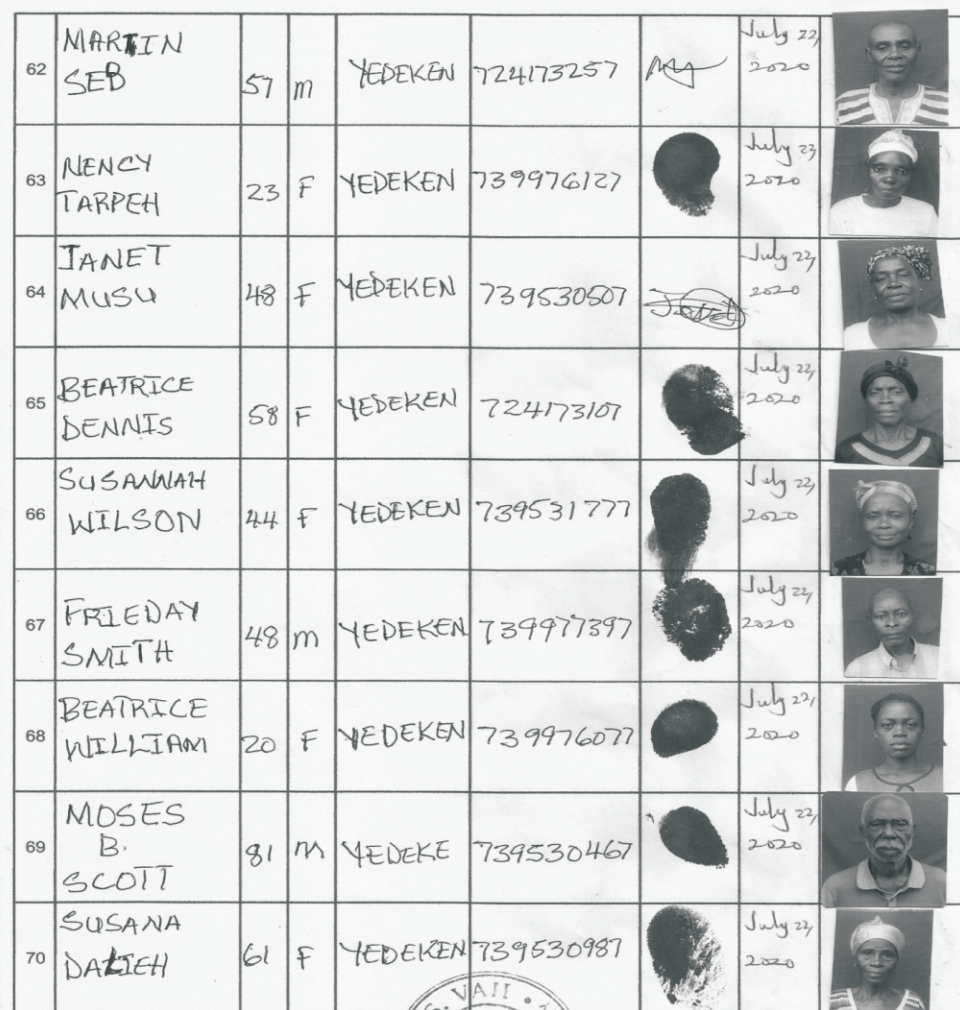 62 MARTIN SEB 57 m YEDEKEN 724173257 July 22, 2020
63 NENCY TARPEH 23 F YEDEKEN 739976127 July 23 2020
64 JANET MUSU 48 F YEDEKEN 739530507 Janet July 22, 2020
65 BEATRICE DENNIS 58 F YEDEKEN 724173107 July 22, 2020
66 SUSANNAH WILSON 44 F YEDEKEN 739531777 July 22, 2020
67 FRIEDAY SMITH 48 m YEDEKEN 739977397 July 22, 2020
68 BEATRICE WILLIAM 20 F YEDEKEN 739976077 July 22, 2020
69 MOSES B. SCOTT 81 m YEDEKE 739530467 July 22, 2020
70 SUSANA 61 F YEDEKEN 739530987 July 22, 2020
S. VAII